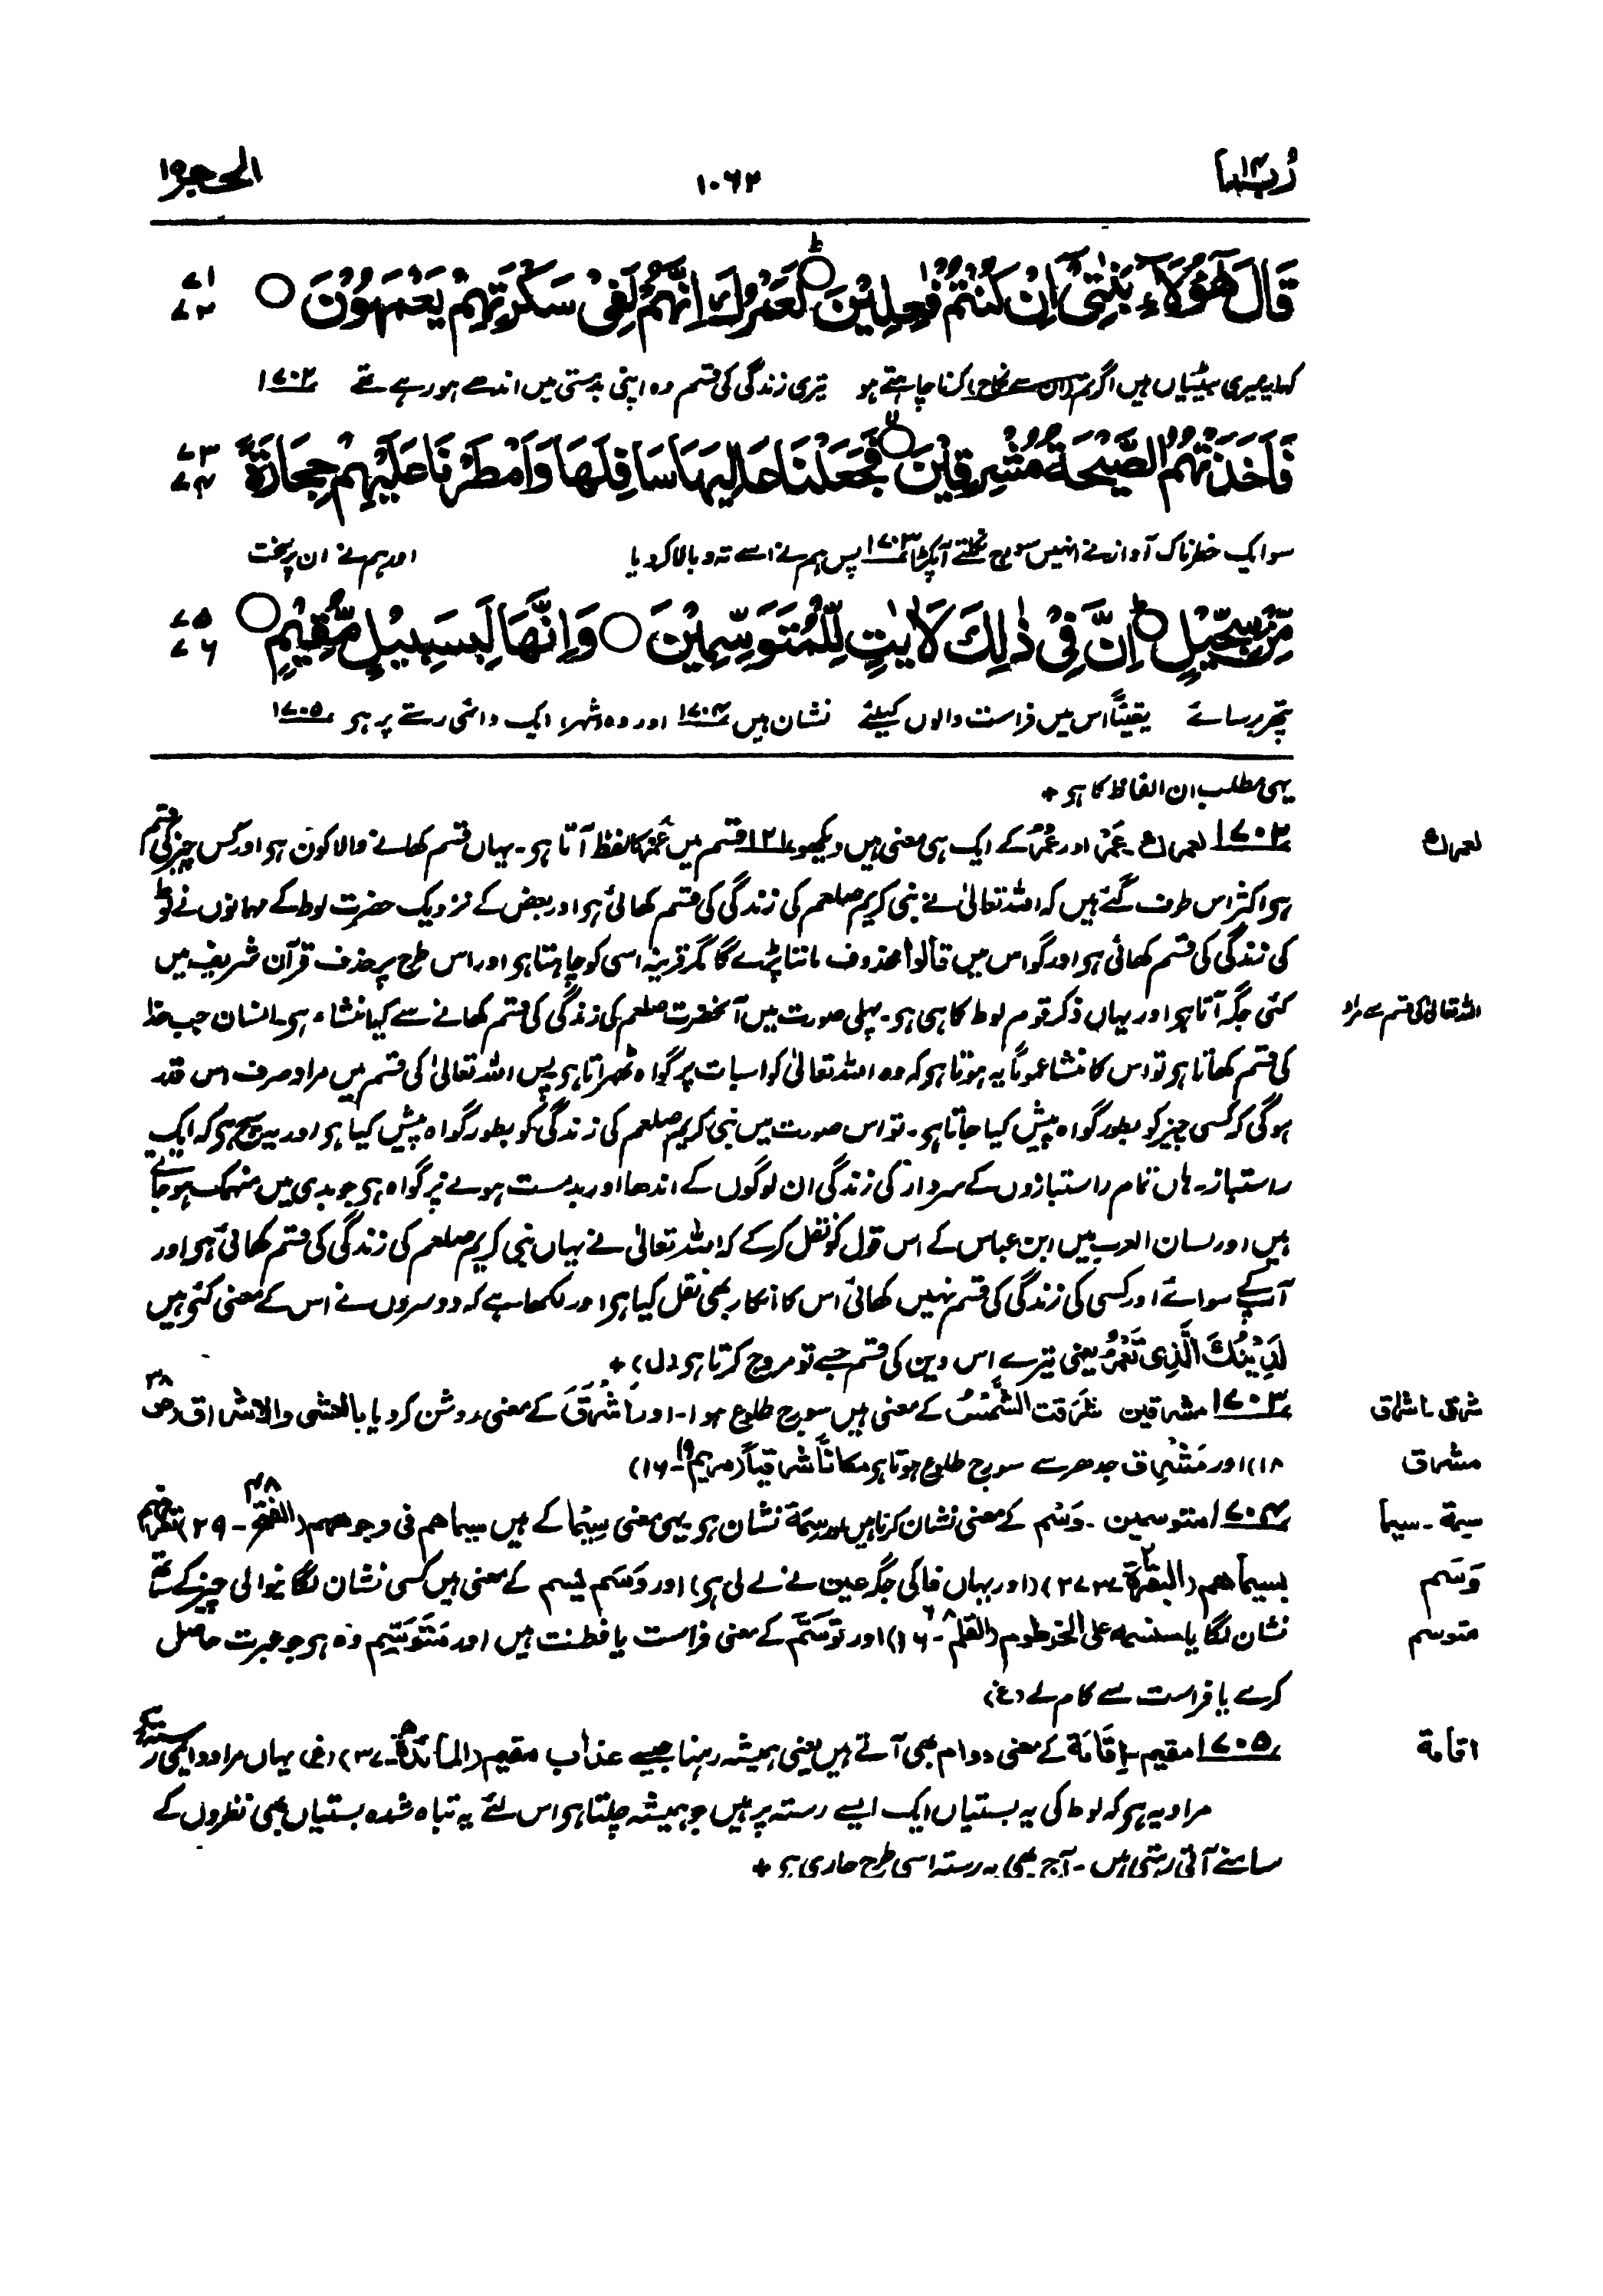 ربما ۱۴ ۱۰۶۲ الحجر ۱۵
قَالَ هٰٓؤُلَآءِ بَنٰتِیْٓ اِنْ كُنْتُمْ فٰعِلِیْنَ ۝ؕ لَعَمْرُكَ اِنَّهُمْ لَفِیْ سَكْرَتِهِمْ یَعْمَهُوْنَ ۝ ۷۱ ۷۲
کہا یہ میری بیٹیاں ہیں اگر تم (ان سے نکاح) کرنا چاہتے ہو تیری زندگی کی قسم وہ اپنی بدمستی میں اندھے ہو رہے تھے ۱۷۰۲
فَاَخَذَتْهُمُ الصَّیْحَةُ مُشْرِقِیْنَ ۝ۙ فَجَعَلْنَا عَالِیَهَا سَافِلَهَا وَاَمْطَرْنَا عَلَیْهِمْ حِجَارَةً ۷۳ ۷۴
سو ایک خطرناک آواز نے انہیں سورج نکلتے آپکڑا ۱۷۰۳ پس ہم نے اسے تہ و بالا کردیا اور ہم نے ان پر سخت
مِّنْ سِجِّیْلٍ ۝ؕ اِنَّ فِیْ ذٰلِكَ لَاٰیٰتٍ لِّلْمُتَوَسِّمِیْنَ ۝ وَاِنَّهَا لَبِسَبِیْلٍ مُّقِیْمٍ ۝ ۷۵ ۷۶
پتھر برسائے یقیناً اس میں فراست والوں کیلئے نشان ہیں ۱۷۰۴ اور وہ (شہر) ایک دائمی رستے پر ہے ۱۷۰۵
یہی مطلب ان الفاظ کا ہے +
لعمرك ۱۷۰۲ لعمرك۔ عَمْر اور عُمُر کے ایک ہی معنی ہیں دیکھو ۱۲۱ قسم میں عَمْر کا لفظ آتا ہے۔ یہاں قسم کھانے والا کون ہے اور کس چیز کی قسم
ہے اکثر اس طرف گئے ہیں کہ اللہ تعالیٰ نے نبی کریم صلعم کی زندگی کی قسم کھائی ہے اور بعض کے نزدیک حضرت لوط کے مہمانوں نے لوط
کی زندگی کی قسم کھائی ہے اور گو اس میں قالوا محذوف ماننا پڑے گا مگر قرینہ اسی کو چاہتا ہے اور اس طرح پر حذف قرآن شریف میں
اللہ تعالیٰ کی قسم سے مراد کئی جگہ آتا ہے اور یہاں ذکر قوم لوط کا ہی ہے۔ پہلی صورت میں آنحضرت صلعم کی زندگی کی قسم کھانے سے کیا منشاء ہے۔ انسان جب خدا
کی قسم کھاتا ہے تو اس کا منشا عموماً یہ ہوتا ہے کہ وہ اللہ تعالیٰ کو اس بات پر گواہ ٹھہراتا ہے پس اللہ تعالیٰ کی قسم میں مراد صرف اس قدر
ہوگی کہ کسی چیز کو بطور گواہ پیش کیا جاتا ہے۔ تو اس صورت میں نبی کریم صلعم کی زندگی کو بطور گواہ پیش کیا ہے اور یہ سچ ہے کہ ایک
راستباز۔ ہاں تمام راستبازوں کے سردار کی زندگی ان لوگوں کے اندھا اور بدمست ہونے پر گواہ ہے جو بدی میں منہمک ہو جاتے
ہیں اور لسان العرب میں ابن عباس کے اس قول کو نقل کرکے کہ اللہ تعالیٰ نے یہاں نبی کریم صلعم کی زندگی کی قسم کھائی ہے اور
آپ کے سوائے اور کسی کی زندگی کی قسم نہیں کھائی اس کا انکار بھی نقل کیا ہے اور لکھا ہے کہ دوسروں نے اس کے معنی کئے ہیں
لَدِیْنُكَ الَّذِی تَعْمُرُ یعنی تیرے اس دین کی قسم جسے تو مروج کرتا ہے (ل) +
شرق۔ اشراق ۱۷۰۳ مشرقین شَرَقت الشَّمْسُ کے معنی ہیں سورج طلوع ہوا۔ اور اَشْرَقَ کے معنی روشن کردیا بالعشی والاشراق (صٓ ۳۸
مشرق ۱۸) اور مَشْرِق جدھر سے سورج طلوع ہوتا ہے مکاناً شرقیاً (مریم ۱۹۔ ۱۶)
سیمة۔ سیما ۱۷۰۴ متوسمین۔ وَسْم کے معنی نشان کرنا ہیں اور سِمَة نشان ہے۔ یہی معنی سِیْمَا کے ہیں سیماهم فی وجوههم (الفتح ۴۸۔ ۲۹) تعرفهم
وَسَم بسیماهم (البقرة ۲۔ ۲۷۳) (اور یہاں فا کی جگہ عین نے لے لی ہے) اور وَسَم یَسِم کے معنی ہیں کسی نشان لگانیوالی چیز کے ساتھ
متوسم نشان لگایا سنسمه علی الخرطوم (القلم ۶۸۔ ۱۶) اور تَوَسَّم کے معنی فراست یا فطنت ہیں اور مُتَوَسِّم وہ ہے جو عبرت حاصل
کرے یا فراست سے کام لے (غ)
اقامة ۱۷۰۵ مقیم۔ اِقَامَة کے معنی دوام بھی آتے ہیں یعنی ہمیشہ رہنا جیسے عذاب مقیم (المائدة ۵۔ ۳۷) (غ) یہاں مراد دائمی رستہ ہے
مراد یہ ہے کہ لوط کی یہ بستیاں ایک ایسے رستہ پر ہیں جو ہمیشہ چلتا ہے اس لئے یہ تباہ شدہ بستیاں بھی نظروں کے
سامنے آتی رہتی ہیں۔ آج بھی یہ رستہ اسی طرح جاری ہے +